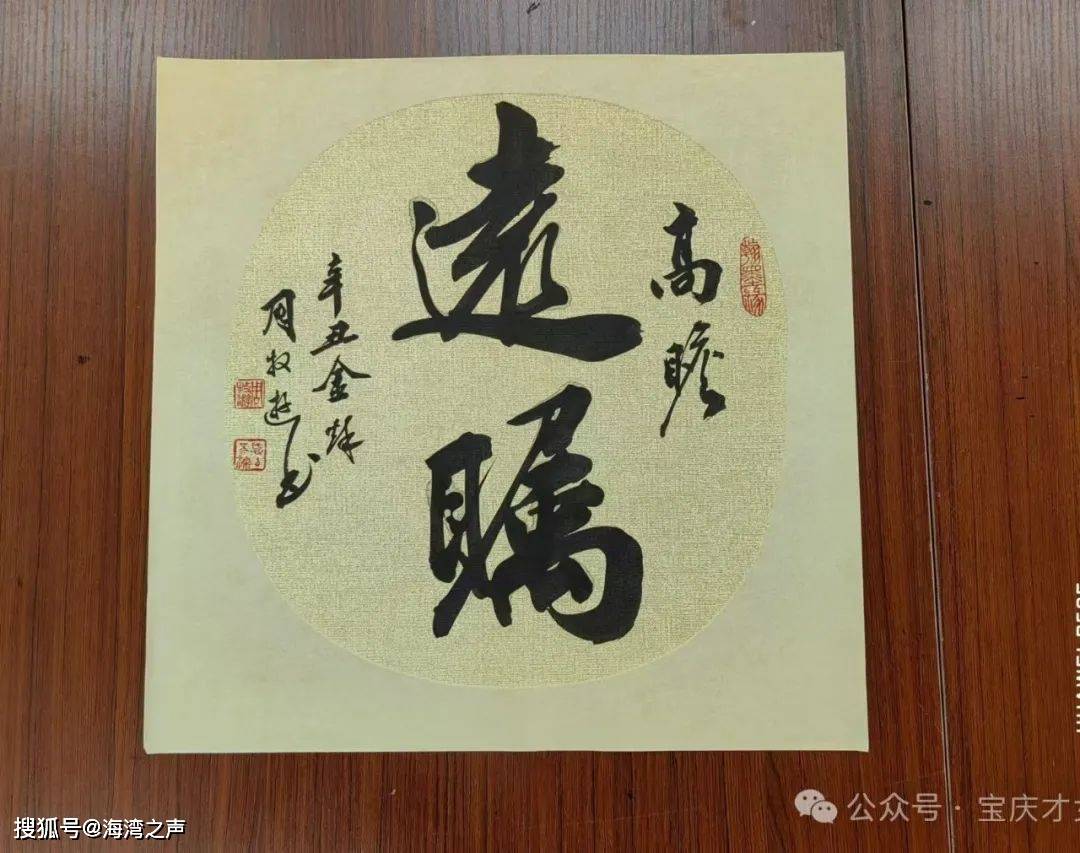 高瞻
遠瞩
辛丑金秋
周牧遊书
搜狐号@海湾之声
公众号·宝庆才